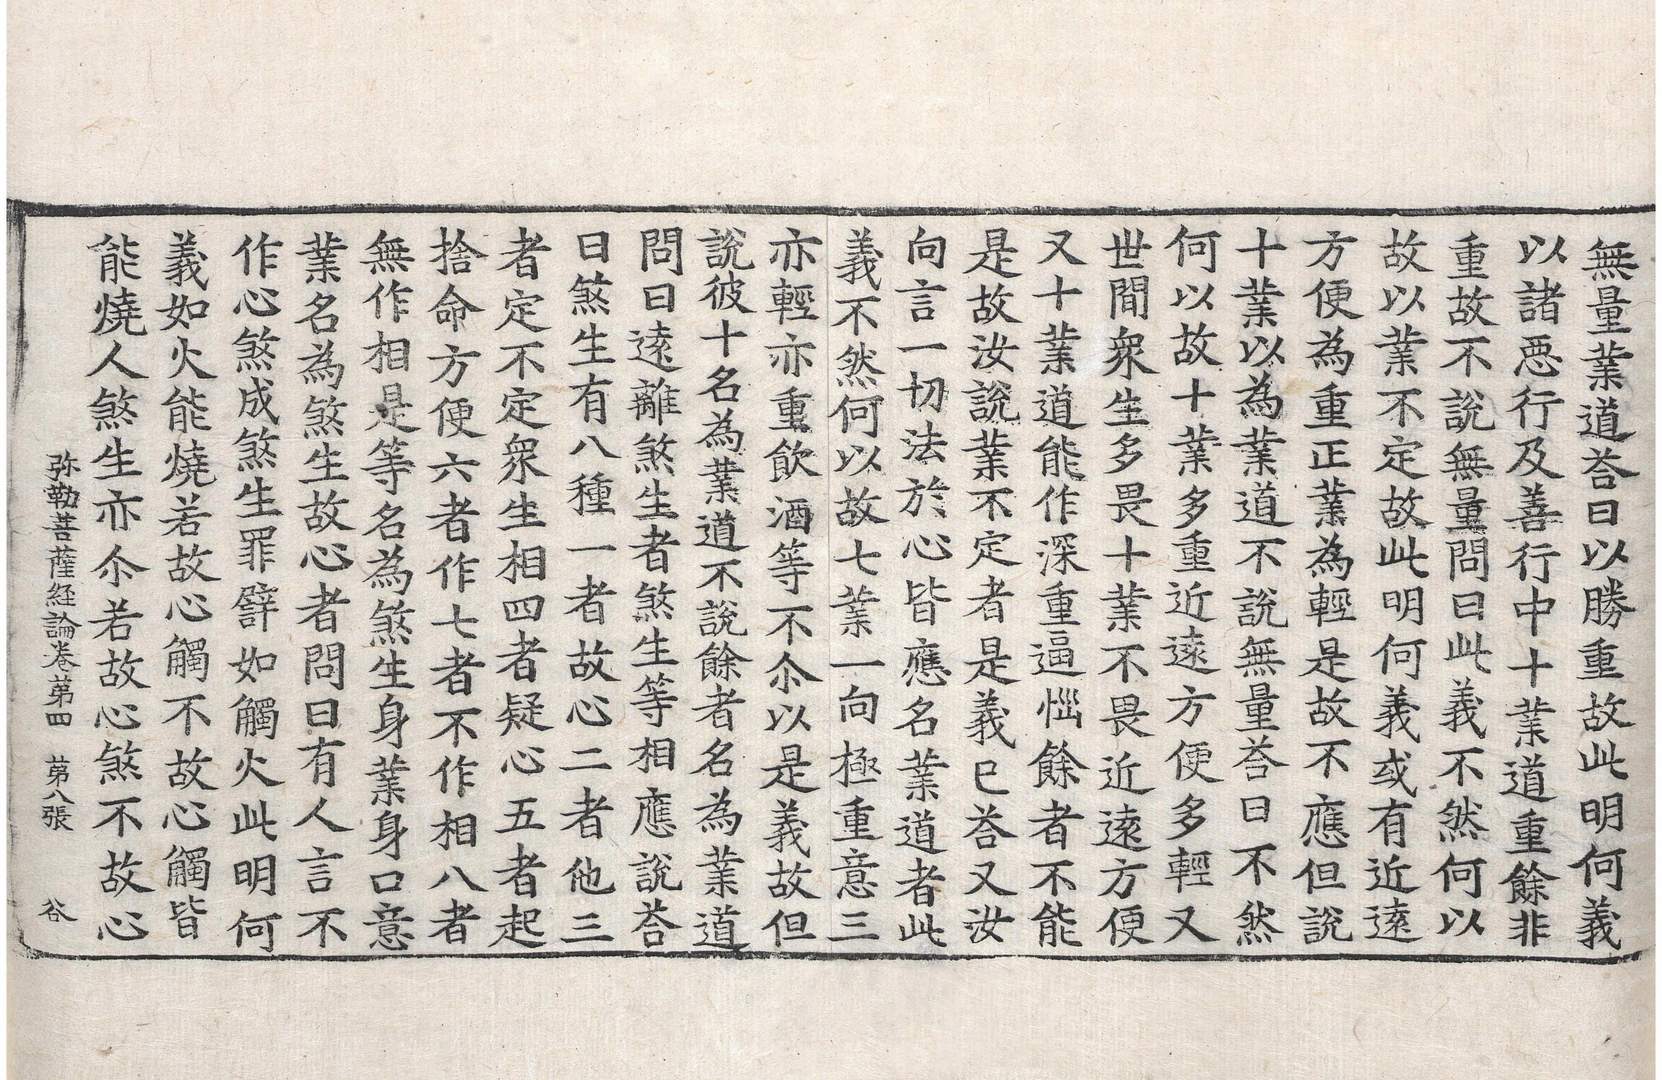 無量業道荅曰以勝重故此明何義
以諸惡行及善行中十業道重餘非
重故不說無量問曰此義不然何以
故以業不定故此明何義或有近遠
方便為重正業為輕是故不應但說
十業以為業道不說無量荅曰不然
何以故十業多重近遠方便多輕又
世間衆生多畏十業不畏近遠方便
又十業道能作深重逼惱餘者不能
是故汝說業不定者是義已荅又汝
向言一切法於心皆應名業道者此
義不然何以故七業一向極重意三
亦輕亦重飲酒等不尒以是義故但
說彼十名為業道不說餘者名為業道
問曰遠離煞生者煞生等相應說荅
曰煞生有八種一者故心二者他三
者定不定衆生相四者疑心五者起
捨命方便六者作七者不作相八者
無作相是等名為煞生身業身口意
業名為煞生故心者問曰有人言不
作心煞成煞生罪譬如觸火此明何
義如火能燒若故心觸不故心觸皆
能燒人煞生亦尒若故心煞不故心
弥勒菩薩經論卷第四 第八張 谷